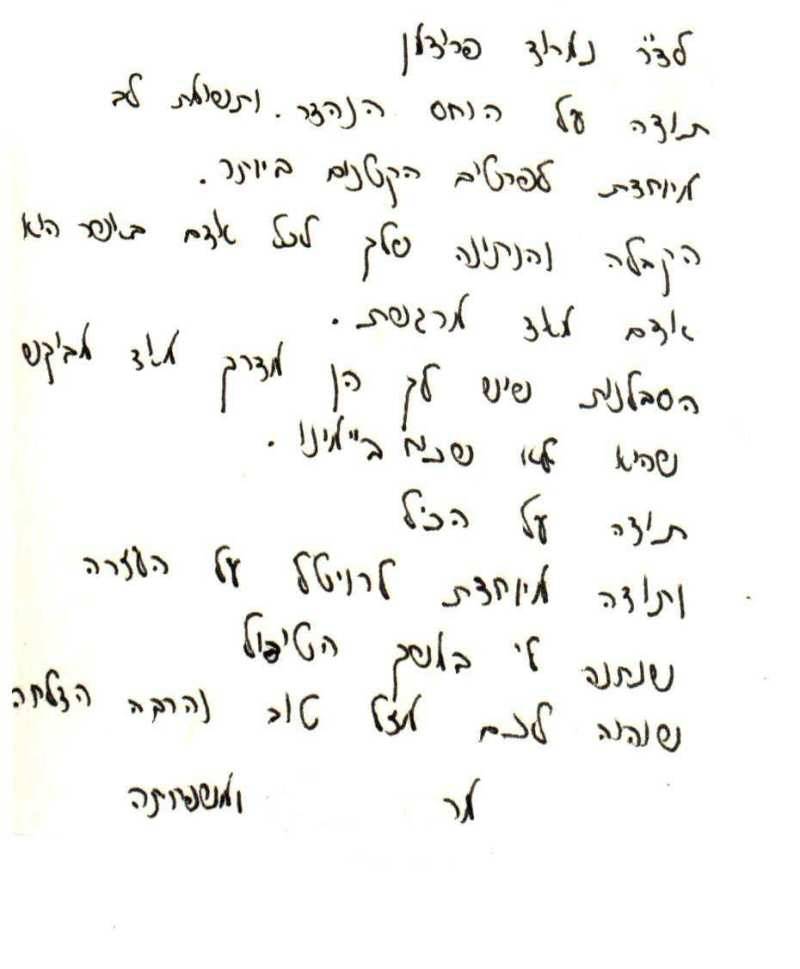 לד"ר נמרוד פרידמן
תודה על היחס הנהדר. ותשומת לב
מיוחדת לפרטים הקטנים ביותר.
הקבלה והנתינה שלך לכל אדם באשר הוא
אדם מאוד מרגשת.
הסבלנות שיש לך הן מצרך מאוד מבוקש
שהיא לא שכיח ביימינו.
תודה על הכול
ותודה מיוחדת לרויטל על העזרה
שנתנה לי במשך הטיפול
שיהיה לכם מזל טוב והרבה הצלחה
מר ומשפחתה